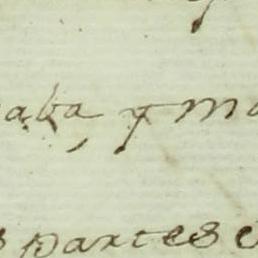 aba, y m
s partes e